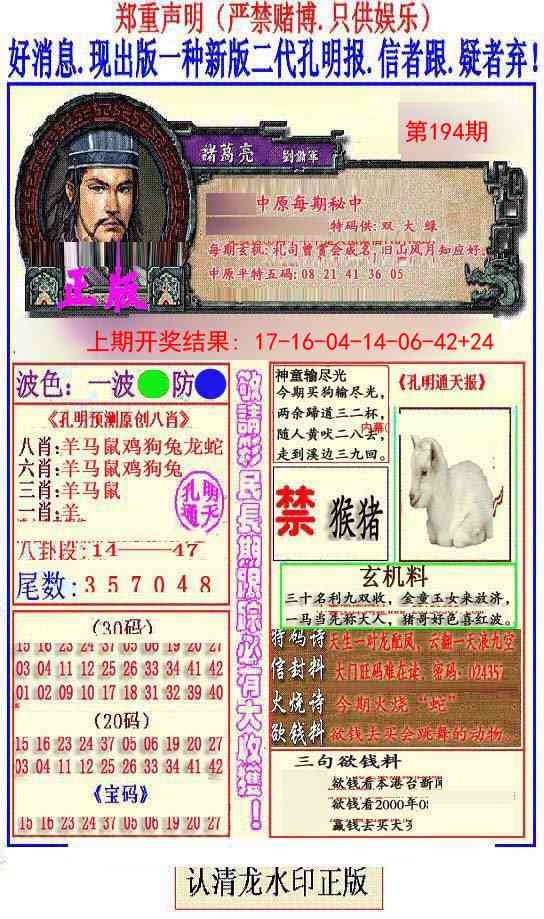 郑重声明（严禁赌博.只供娱乐）
好消息.现出版一种新版二代孔明报.信者跟.疑者弃!
第194期
諸葛亮
中原每期秘中
特码供:双 大 绿
每期玄机:
旧山风月知应好.
中原平特五码: 08 21 41 36 05
正版
上期开奖结果: 17-16-04-14-06-42+24
波色: 一波 防
《孔明预测原创八肖》
八肖:羊马鼠鸡狗兔龙蛇
六肖:羊马鼠鸡狗兔
三肖:羊马鼠
一肖:羊
孔明
通天
八卦段:14——47
尾数:3 5 7 0 4 8
(30码)
15 16 23 24 37 05 06 19 20 27
03 04 11 12 25 26 33 34 41 42
01 02 09 10 17 18 31 32 39 40
(20码)
15 16 23 24 37 05 06 19 20 27
03 04 11 12 25 26 33 34 41 42
《宝码》
15 16 23 24 37 05 06 19 20 27
敬請彩民長期跟踪必有大收獲!
神童输尽光
今期买狗输尽光,
两余蹄道三二杯,
随人黄吠二八去,
内幕
走到溪边三九回。
《孔明通天报》
禁 猴猪
玄机料
三十名利九双收，金童玉女来救济,
一马当先称大人，猪哥好色喜红波。
特码诗 天生一对龙配凤，云翻一天浪九空
信封料 大门旺码难在读，密码：024357
火烧诗 今期火烧“蛇”
欲钱料 欲钱去买会跳舞的动物.
三句欲钱料
欲钱看本港台新闻
欲钱看2000年0
赢钱去买天
认清龙水印正版